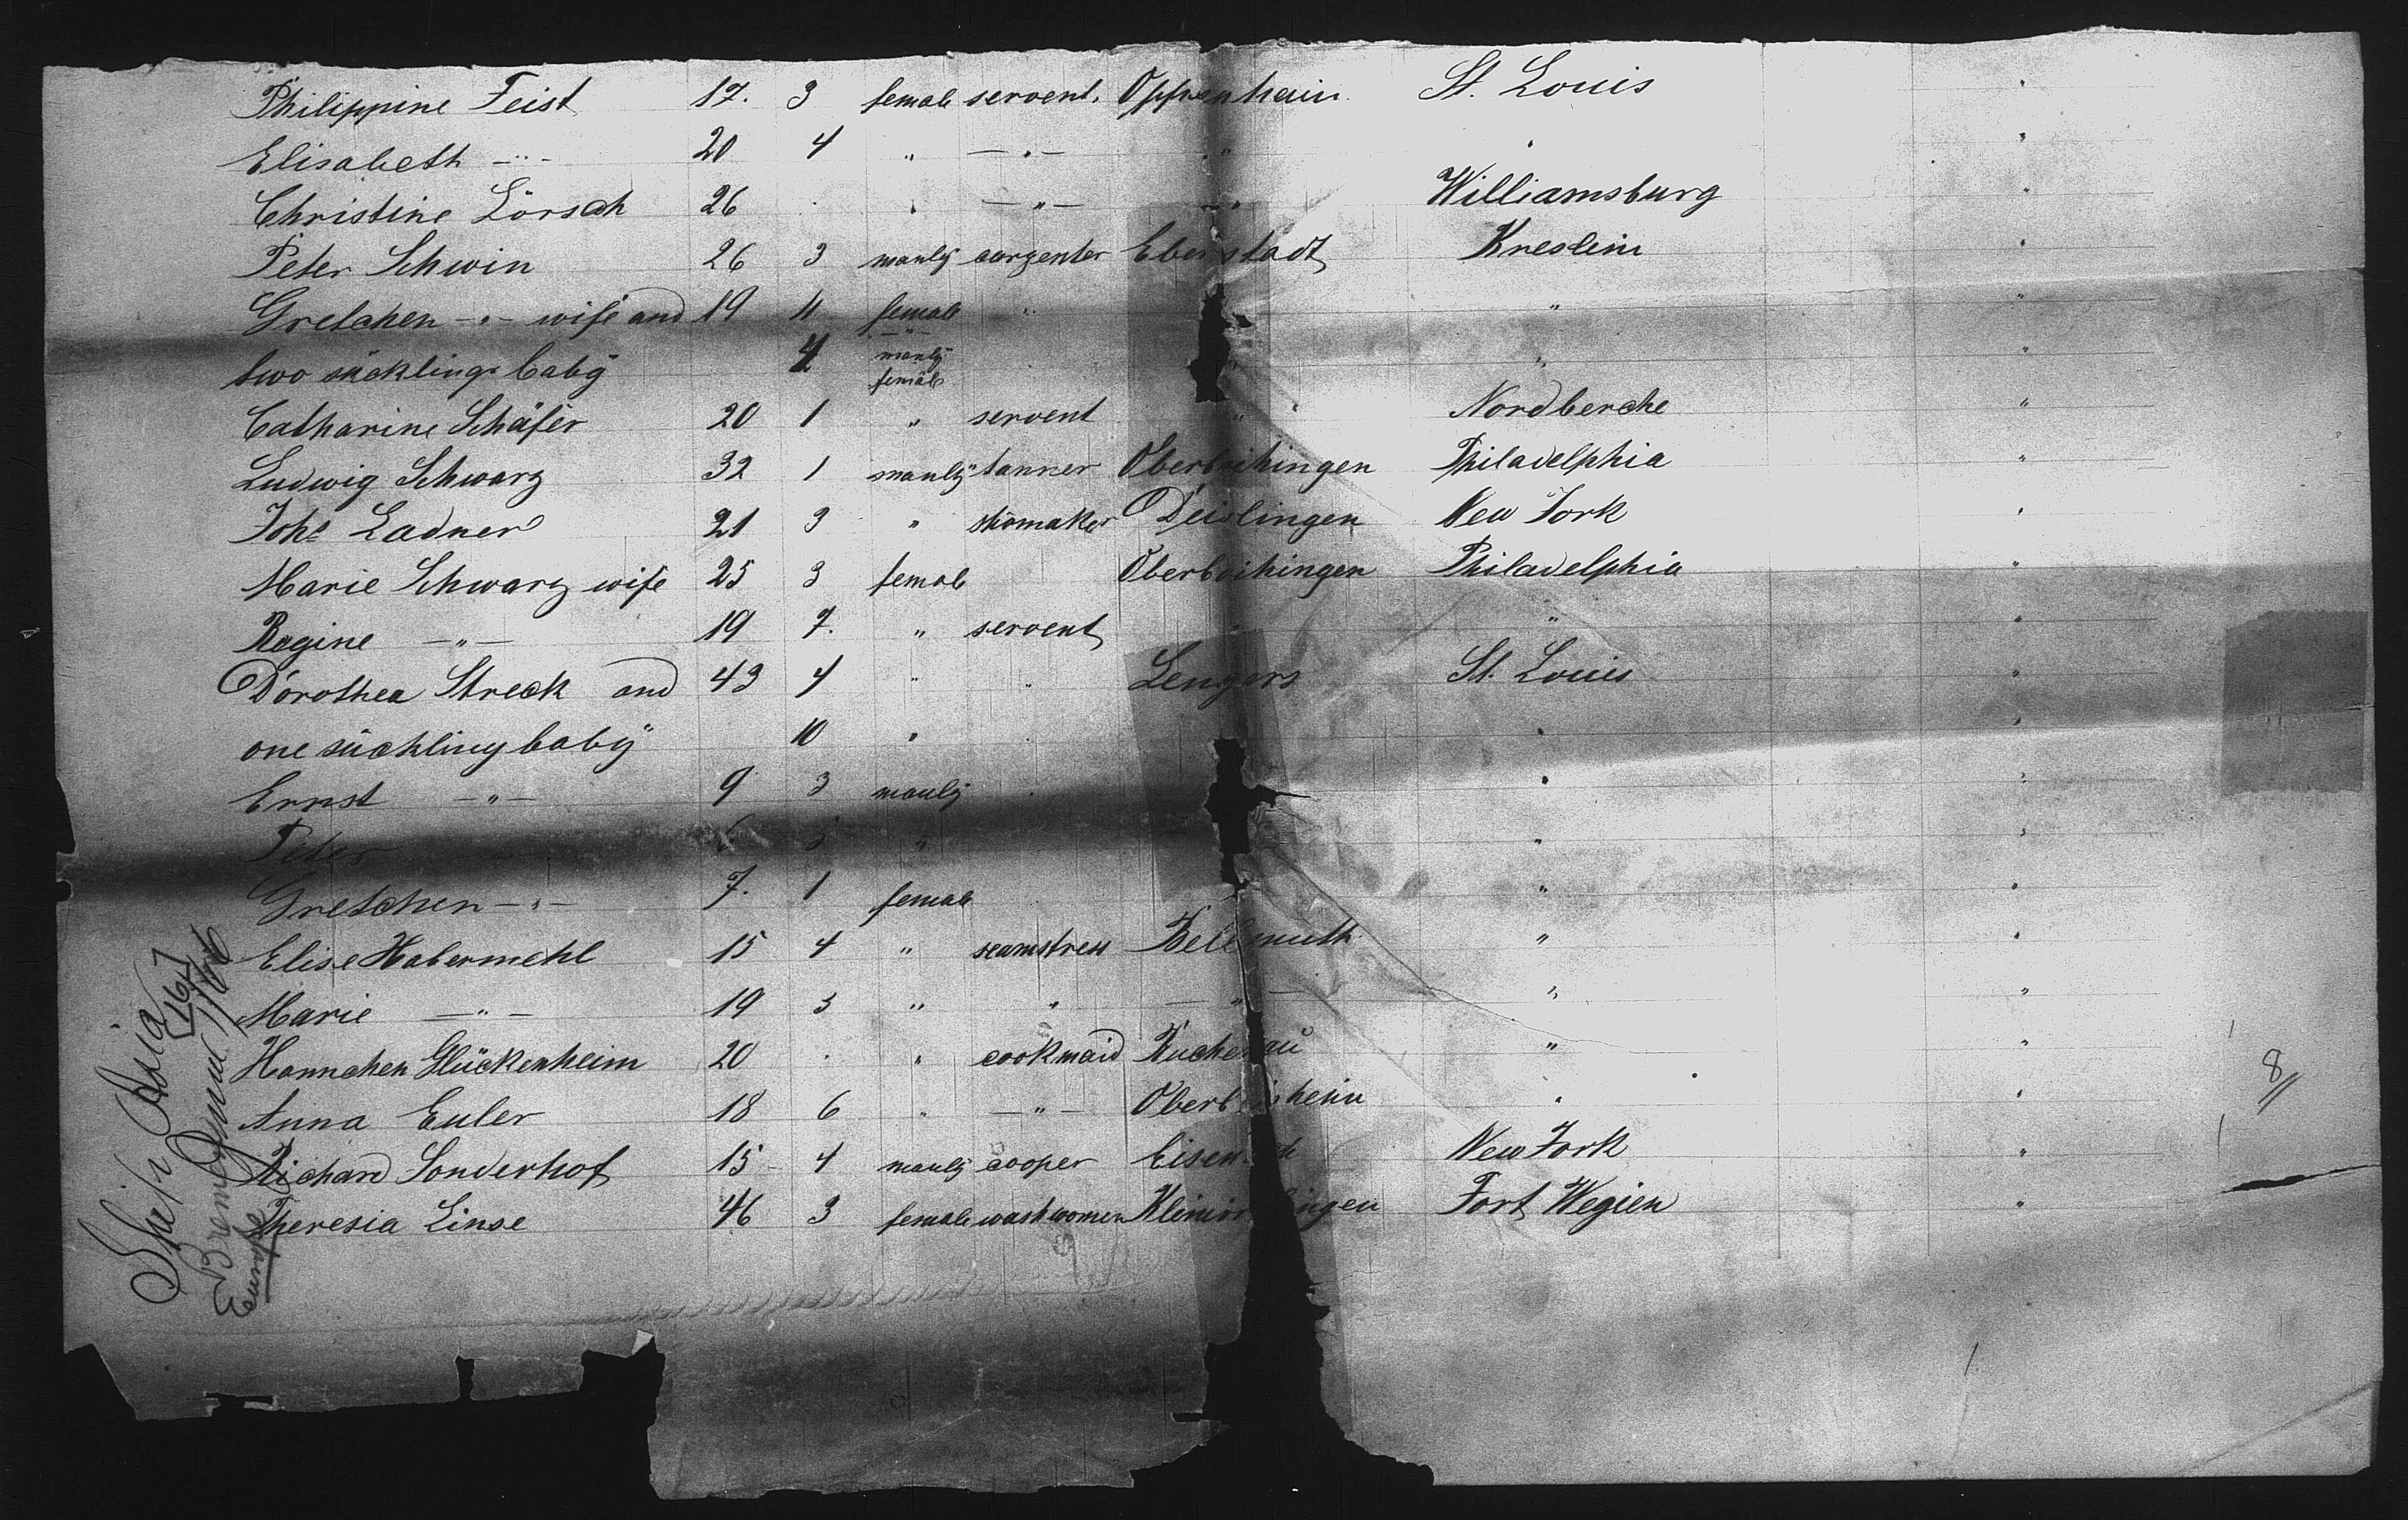 Philippine Feist 17. 3 female servent. Oppenheim St. Louis "
Elisabeth -"- 20 4 " -"- " " "
Christine Lörsch 26 " " -"- " Williamsburg "
Peter Schwin 26 3 manly carpenter Eberstadt Kreslein "
Gretchen -"- wife and 19 11 female " " "
two sückling baby 4 -"- manly female " " "
Catharine Schäfer 20 1 " servent " Nordberche "
Ludwig Schwarz 32 1 manly tanner Oberboihingen Philadelphia "
Johs Ladner 21 3 " shomaker Deislingen New York "
Marie Schwarz wife 25 3 female Oberboihingen Philadelphia "
Regine -"- 19 7. " servent " " "
Dorothea Streck and 43 4 " Lengers St. Louis "
one sückling baby 10 " " "
Ernst -"- 9 3 manly " "
Peter 6 3 " " "
Gretchen -"- 7. 1 female " "
Elise Habermehl 15 4 " seamstress Bellmuth " "
Marie -"- 19 3 " " -"- " "
Hannchen Glückenheim 20 " " cookmaid Buchenau " "
Anna Euler 18 6 " -"- Oberb heim " "
Richard Sonderhof 15 4 manly cooper New York "
Theresia Linse 46 3 female washwomen Fort Wegien "
Ship Asia
[167]
Bremen
Europe
8